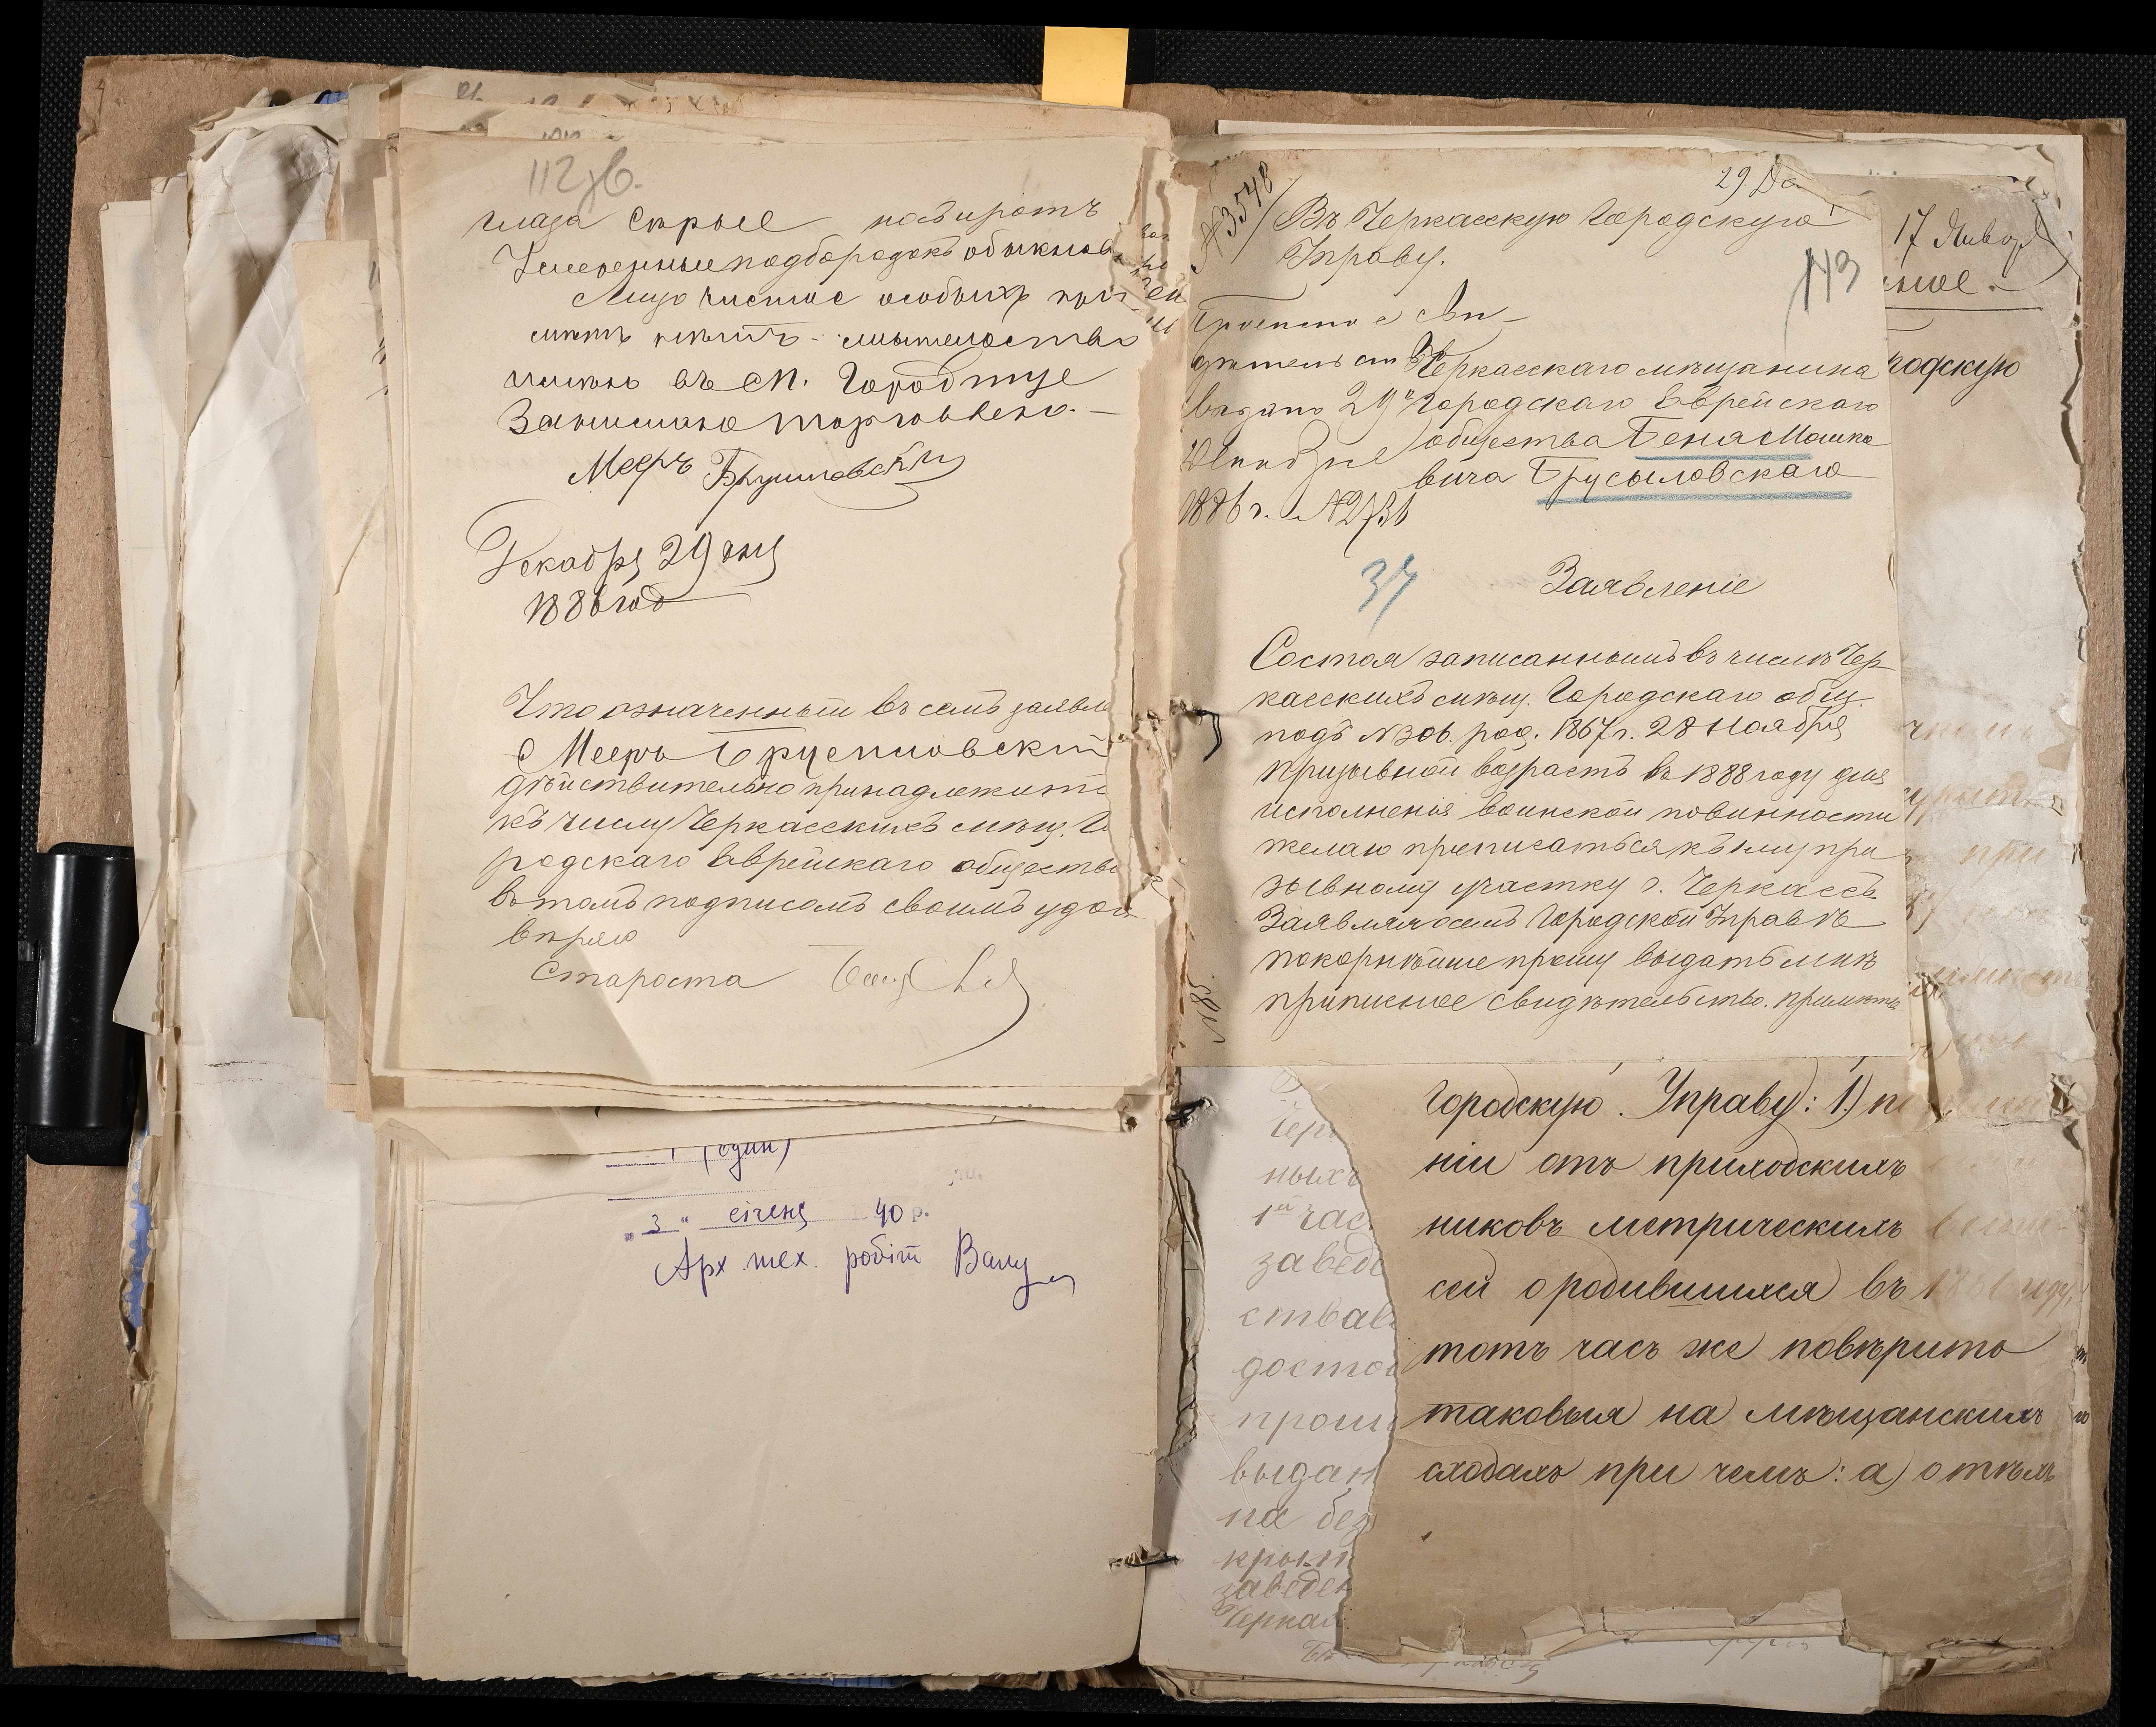 112 зв.
глаза серые нос и ротъ
Умеренные подбородокъ обыкнов
Лицо чистое особыхъ при
метъ нетъ - жительство
имею въ м. Городище
Занимаюс торговлею. -
Мееръ Брусиловский
Декабря 29 дня
1886 год
Что означенный въ семъ заявле
Мееръ Брусиловский
действительно принадлежитъ
къ числу Черкасскихъ мещ. Го
родскаго Еврейскаго общества
въ томъ подписомъ своимъ удос
веряю
Староста
1 (один)
3 " січень 40 р.
Арх. тех. робіт
№3548
29 Де
113
Въ Черкасскую Городскую
Управу.
Черкасскаго мещанина
Городскаго Еврейскаго
общества Беня Мошко
вича Брусыловскаго
выдано 29
Декабря
1886 г. №2731
37
Заявленіе
Состоя записаннымъ въ числе Чер
касскихъ мещ. Городскаго общ.
подъ №306. род. 1867 г. 28 Ноября
призывной возрастъ въ 1888 году для
исполненія воинской повинности
желаю преписаться къ му при
зывному участку г. Черкассъ
Заявляя о семъ Городской Управе
покорнейше прошу выдать мне
приписное свидѣтельство. примѣты
17 Января
родскую
Городскую Управу: 1)
ніи отъ приходскихъ
никовъ метрическихъ
сей о родившихся въ
тотъ часъ же повѣрить
таковыя на мѣщанскихъ
сходахъ при чемъ: а) о тѣхъ
ныхъ
1й час
завед
ства
достов
прош
выдан
на без
заведен
Черкас